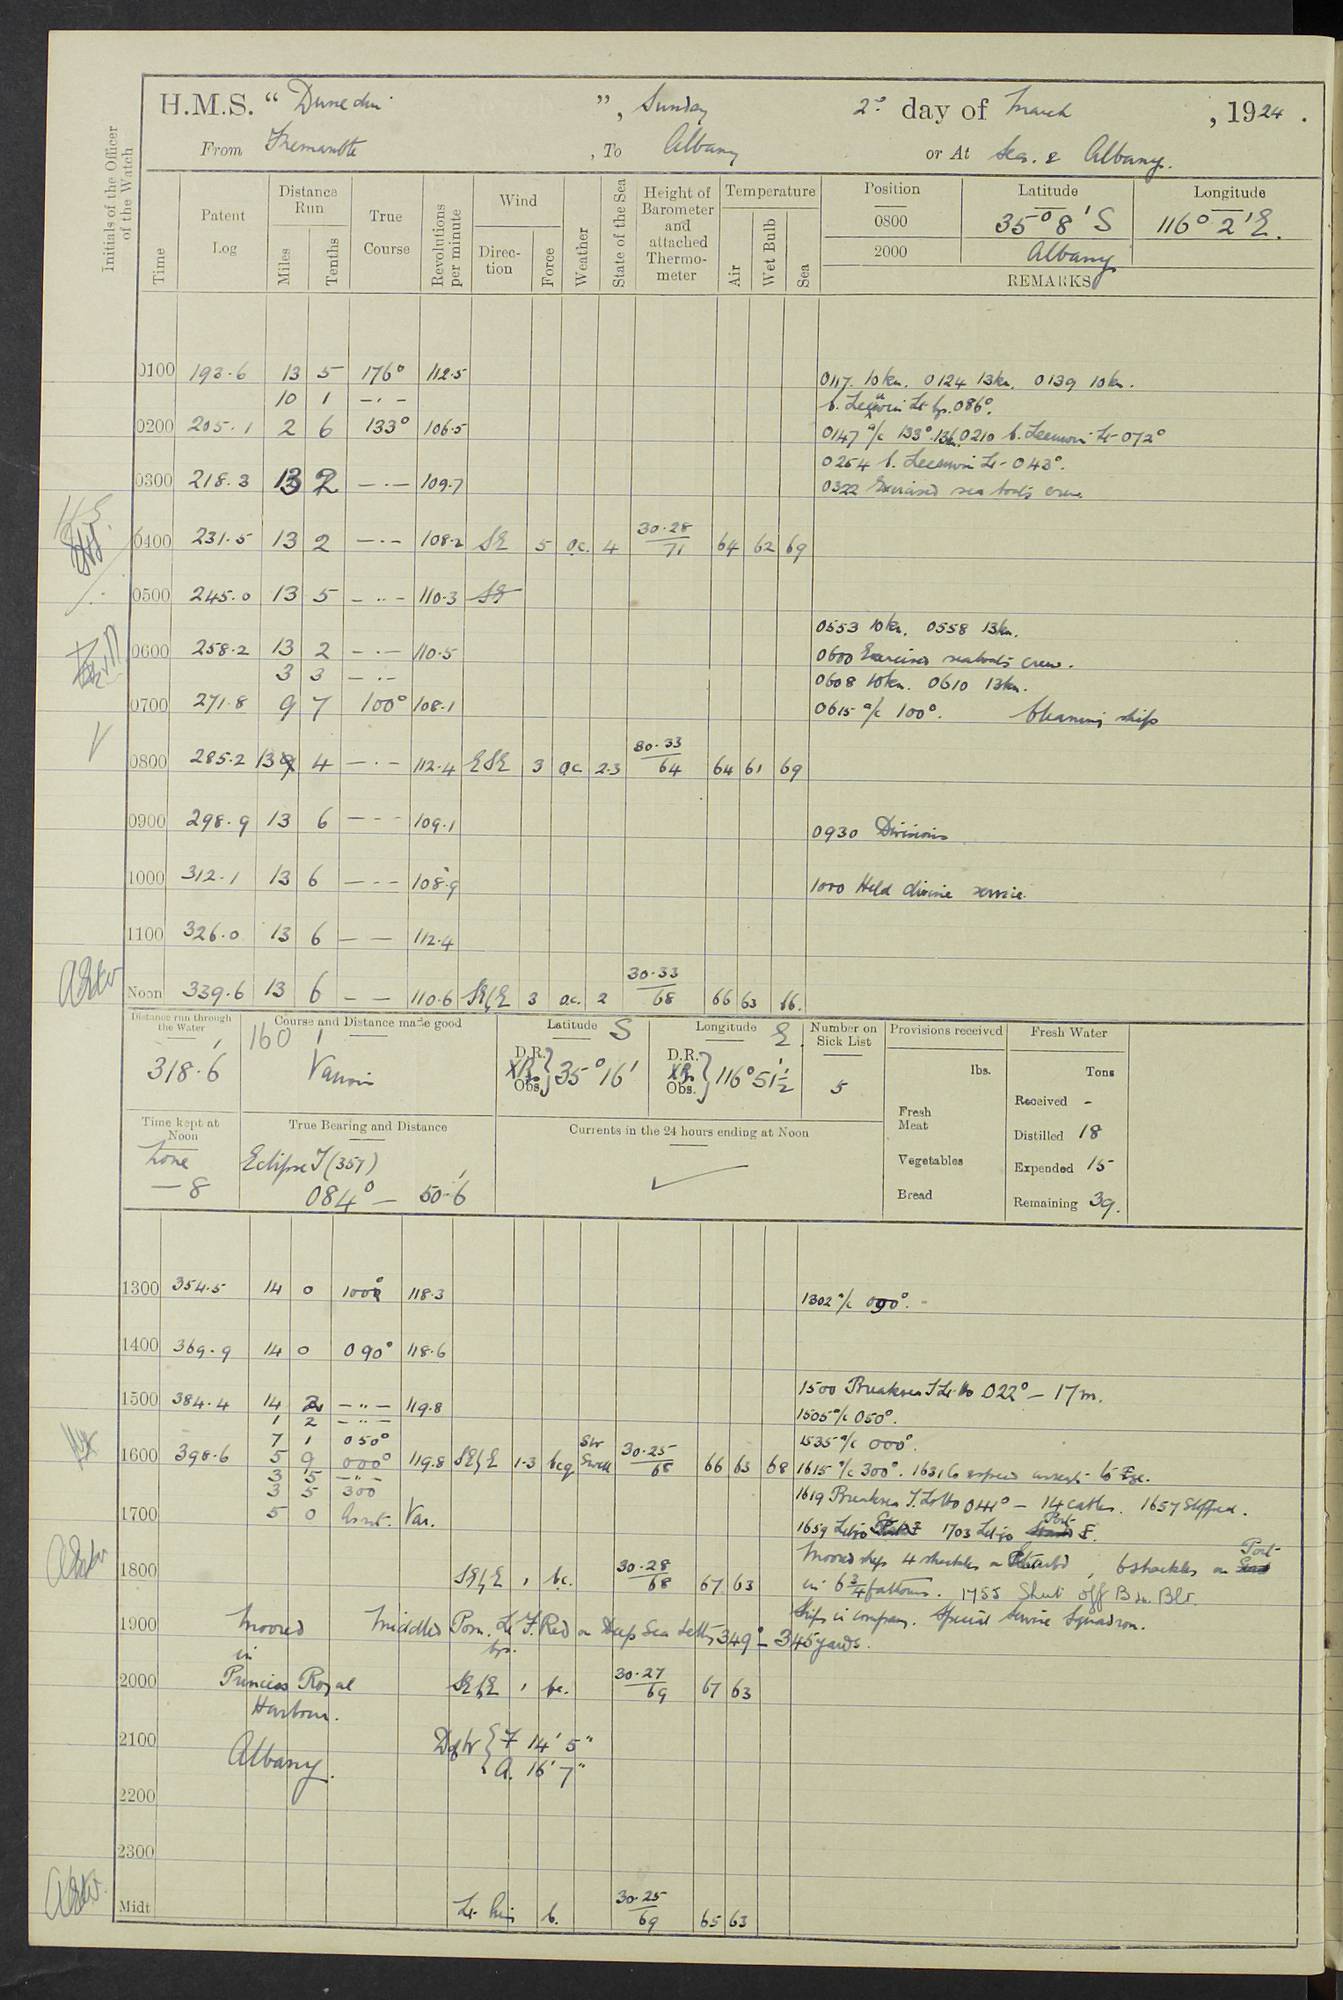 H.M.S. "Dunedin", Sunday 2nd day of March, 1924.
From Fremantle, To Albany or At Sea. & Albany.
Initials of the Officer of the Watch
Time
Patent Log
Distance Run
Miles
Tenths
True Course
Revolutions per minute
Wind
Direction
Force
Weather
State of the Sea
Height of Barometer and attached Thermometer
Temperature
Air
Wet Bulb
Sea
Position Latitude Longitude
0800 35° 8' S 116° 2' E.
2000 Albany
REMARKS
0100 193.6 13 5 176° 112.5
0117. 10kn. 0124 13kn. 0139 10kn.
10 1 — . —
b. Leeuwin Lt brg. 086°.
0200 205.1 2 6 133° 106.5 0147 a/c 133°. 13kn. 0210 b. Leeuwin Lt - 072°
0254 b. Leeuwin Lt - 043°.
0300 218.3 13 2 — . — 109.7 0322 Exercised sea boats crew
0400 231.5 13 2 — . — 108.2 SE 5 o.c. 4 30.28/71 64 62 69
0500 245.0 13 5 — .. — 110.3 SE
0553 10kn. 0558 13kn.
0600 258.2 13 2 — . — 110.5 0600 Exercised seaboats crew.
3 3 — . — 0608 10kn. 0610 13kn.
0700 271.8 9 7 100° 108.1 0615 a/c 100°. Cleaning ship
0800 285.2 13 4 — . — 112.4 ESE 3 o.c. 2.3 30.33/64 64 61 69
0900 298.9 13 6 — . — 109.1
0930 Divisions
1000 312.1 13 6 — . — 108.9 1000 Held divine service.
1100 326.0 13 6 — — 112.4
Noon 339.6 13 6 — — 110.6 SE b E 3 o.c. 2 30.33/68 66 63 66.
Distance run through the Water
318.6
Course and Distance made good
160'
Various
Latitude S
D.R. Obs. } 35° 16'
Longitude E
D.R. Obs. } 116° 51½'
Number on Sick List
5
Provisions received
lbs.
Fresh Meat
Vegetables
Bread
Fresh Water
Tons
Received -
Distilled 18
Expended 15
Remaining 39.
Time kept at Noon
Zone
— 8
True Bearing and Distance
Eclipse I (357)
084° — 50.6'
Currents in the 24 hours ending at Noon
1300 354.5 14 0 100° 118.3 1302 a/c 090°.
1400 369.9 14 0 090° 118.6
1500 Breaksea I Lt Ho 022° — 17 m.
1500 384.4 14 2 — .. — 119.8
1 2 — .. — 1505 a/c 050°.
7 1 050° 1535 a/c 000°.
1600 398.6 5 9 000° 119.8 SE b E 1-3 bcq SW Swell 30.25/68 66 63 68 1615 a/c 300°.
3 5 — .. —
3 5 300 1619 Breaksea I. Lt Ho 041° — 14 cables. 1657 Stopped.
1700 5 0 Var.
1659 Let go 1703 Let go Port
Moored ship 4 shackles on Starbd, 6 shackles on Port
1800 SE b E 1 bc. 30.28/68 67 63 in 6¾ fathoms. 1755 Shut off
Ships in company. Special Service Squadron.
1900 Moored Middle Lt F. Red on Deep Sea Jetty 349° — 345 yards.
in
2000 Princess Royal SE b E 1 bc. 30.27/69 67 63
Harbour.
2100 Albany. { F 14' 5"
A. 16' 7"
2200
2300
Midt Lt. Airs b. 30.25/69 65 63